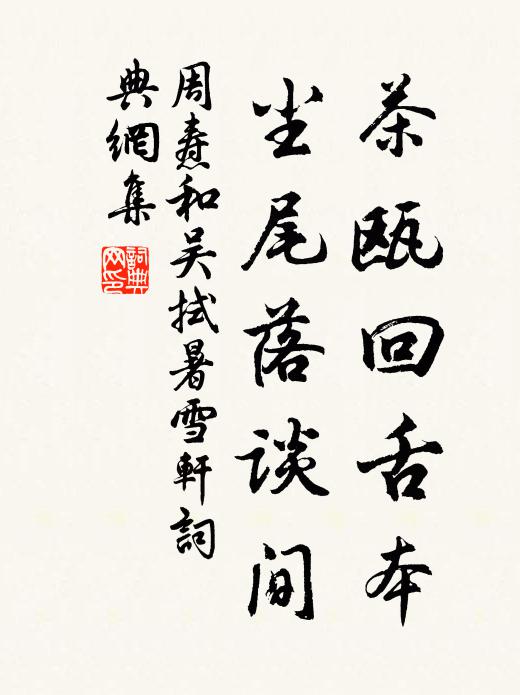 茶瓯回舌本
尘尾落谈间
周焘和吴拭暑雪軒詞
典網集
詞典
网印